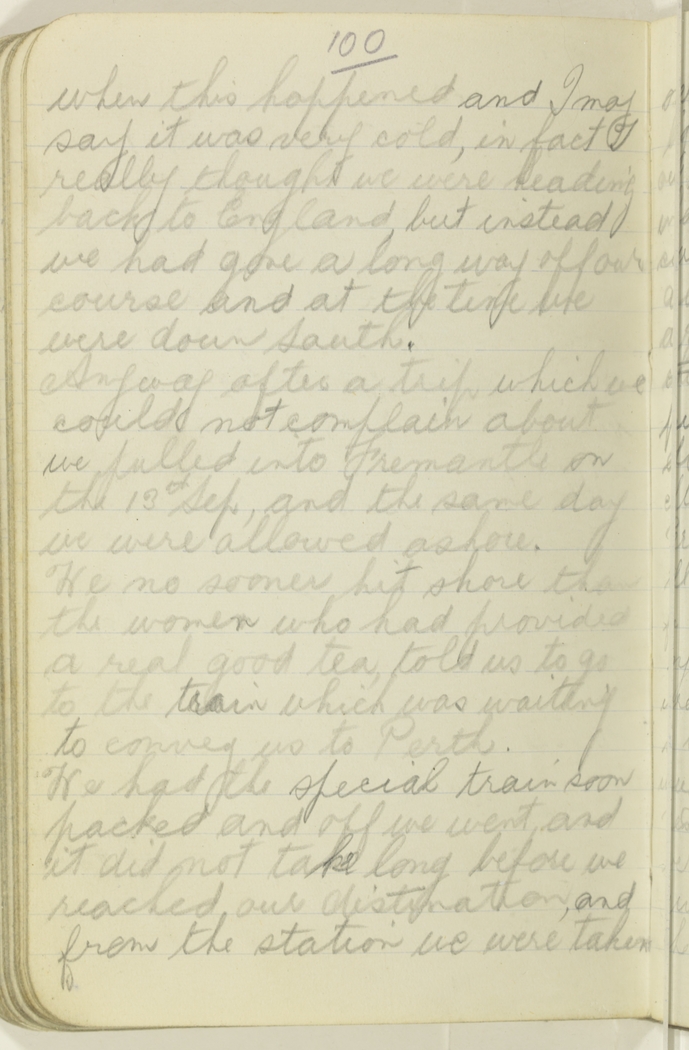 100
when this happened and I may
say it was very cold, in fact I
really thought we were heading
back to England, but instead
we had gone a long way off our
course and at the time we
were down South.
Anyway after a trip which we
could not complain about
we pulled into Fremantle on
the 13th Sep, and the same day
we were allowed ashore.
We no sooner hit shore than
the women who had provided
a real good tea, told us to go
to the train which was waiting
to convey us to Perth.
We had the special train soon
packed and off we went, and
it did not take long before we
reached our distination, and
from the station we were taken